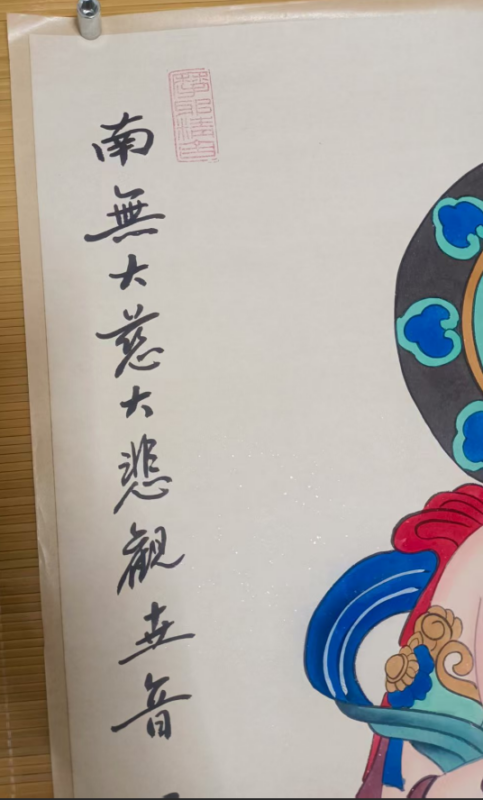 南無大慈大悲觀世音